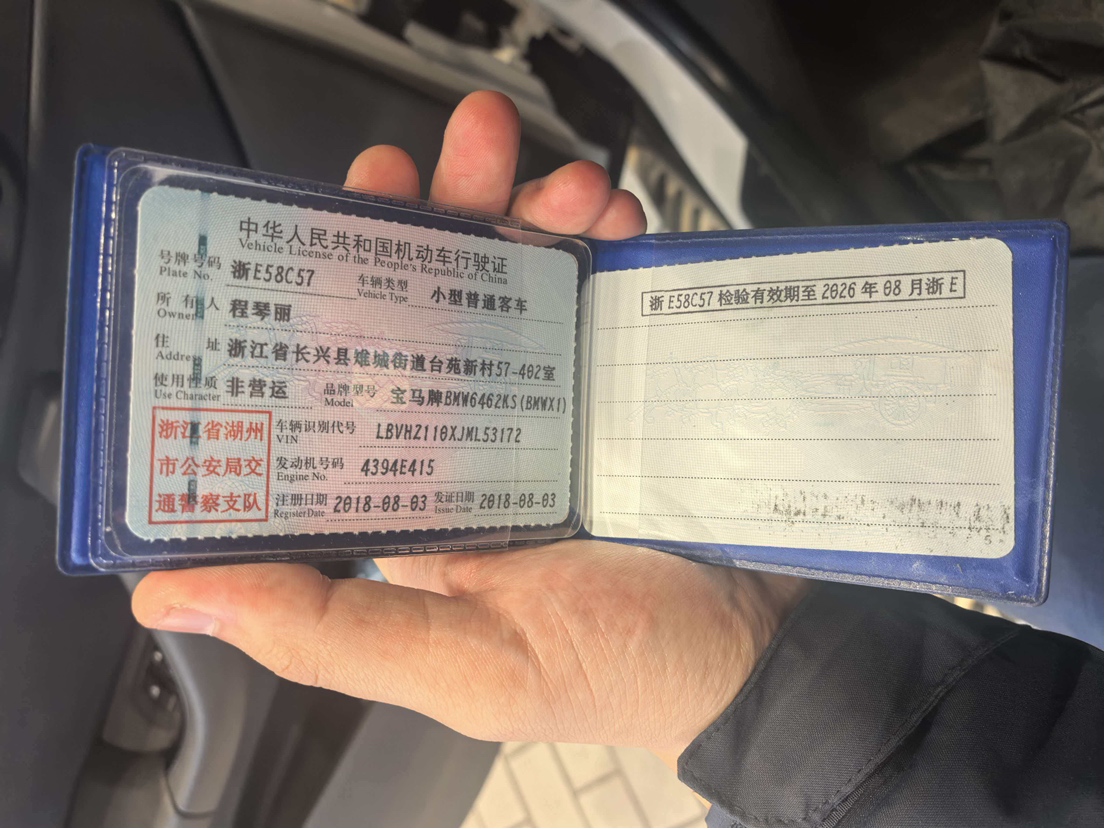 中华人民共和国机动车行驶证
Vehicle License of the People's Republic of China
号牌号码 浙E58C57 车辆类型 小型普通客车
Plate No. Vehicle Type
所有人 程琴丽
Owner
住址 浙江省长兴县雉城街道台苑新村57-402室
Address
使用性质 非营运 品牌型号 宝马牌BMW6462KS(BMWX1)
Use Character Model
浙江省湖州
市公安局交
通警察支队
车辆识别代号 LBVHZ110XJML53172
VIN
发动机号码 4394E415
Engine No.
注册日期 2018-08-03 发证日期 2018-08-03
Register Date Issue Date
浙E58C57 检验有效期至 2026 年 08 月浙 E
5